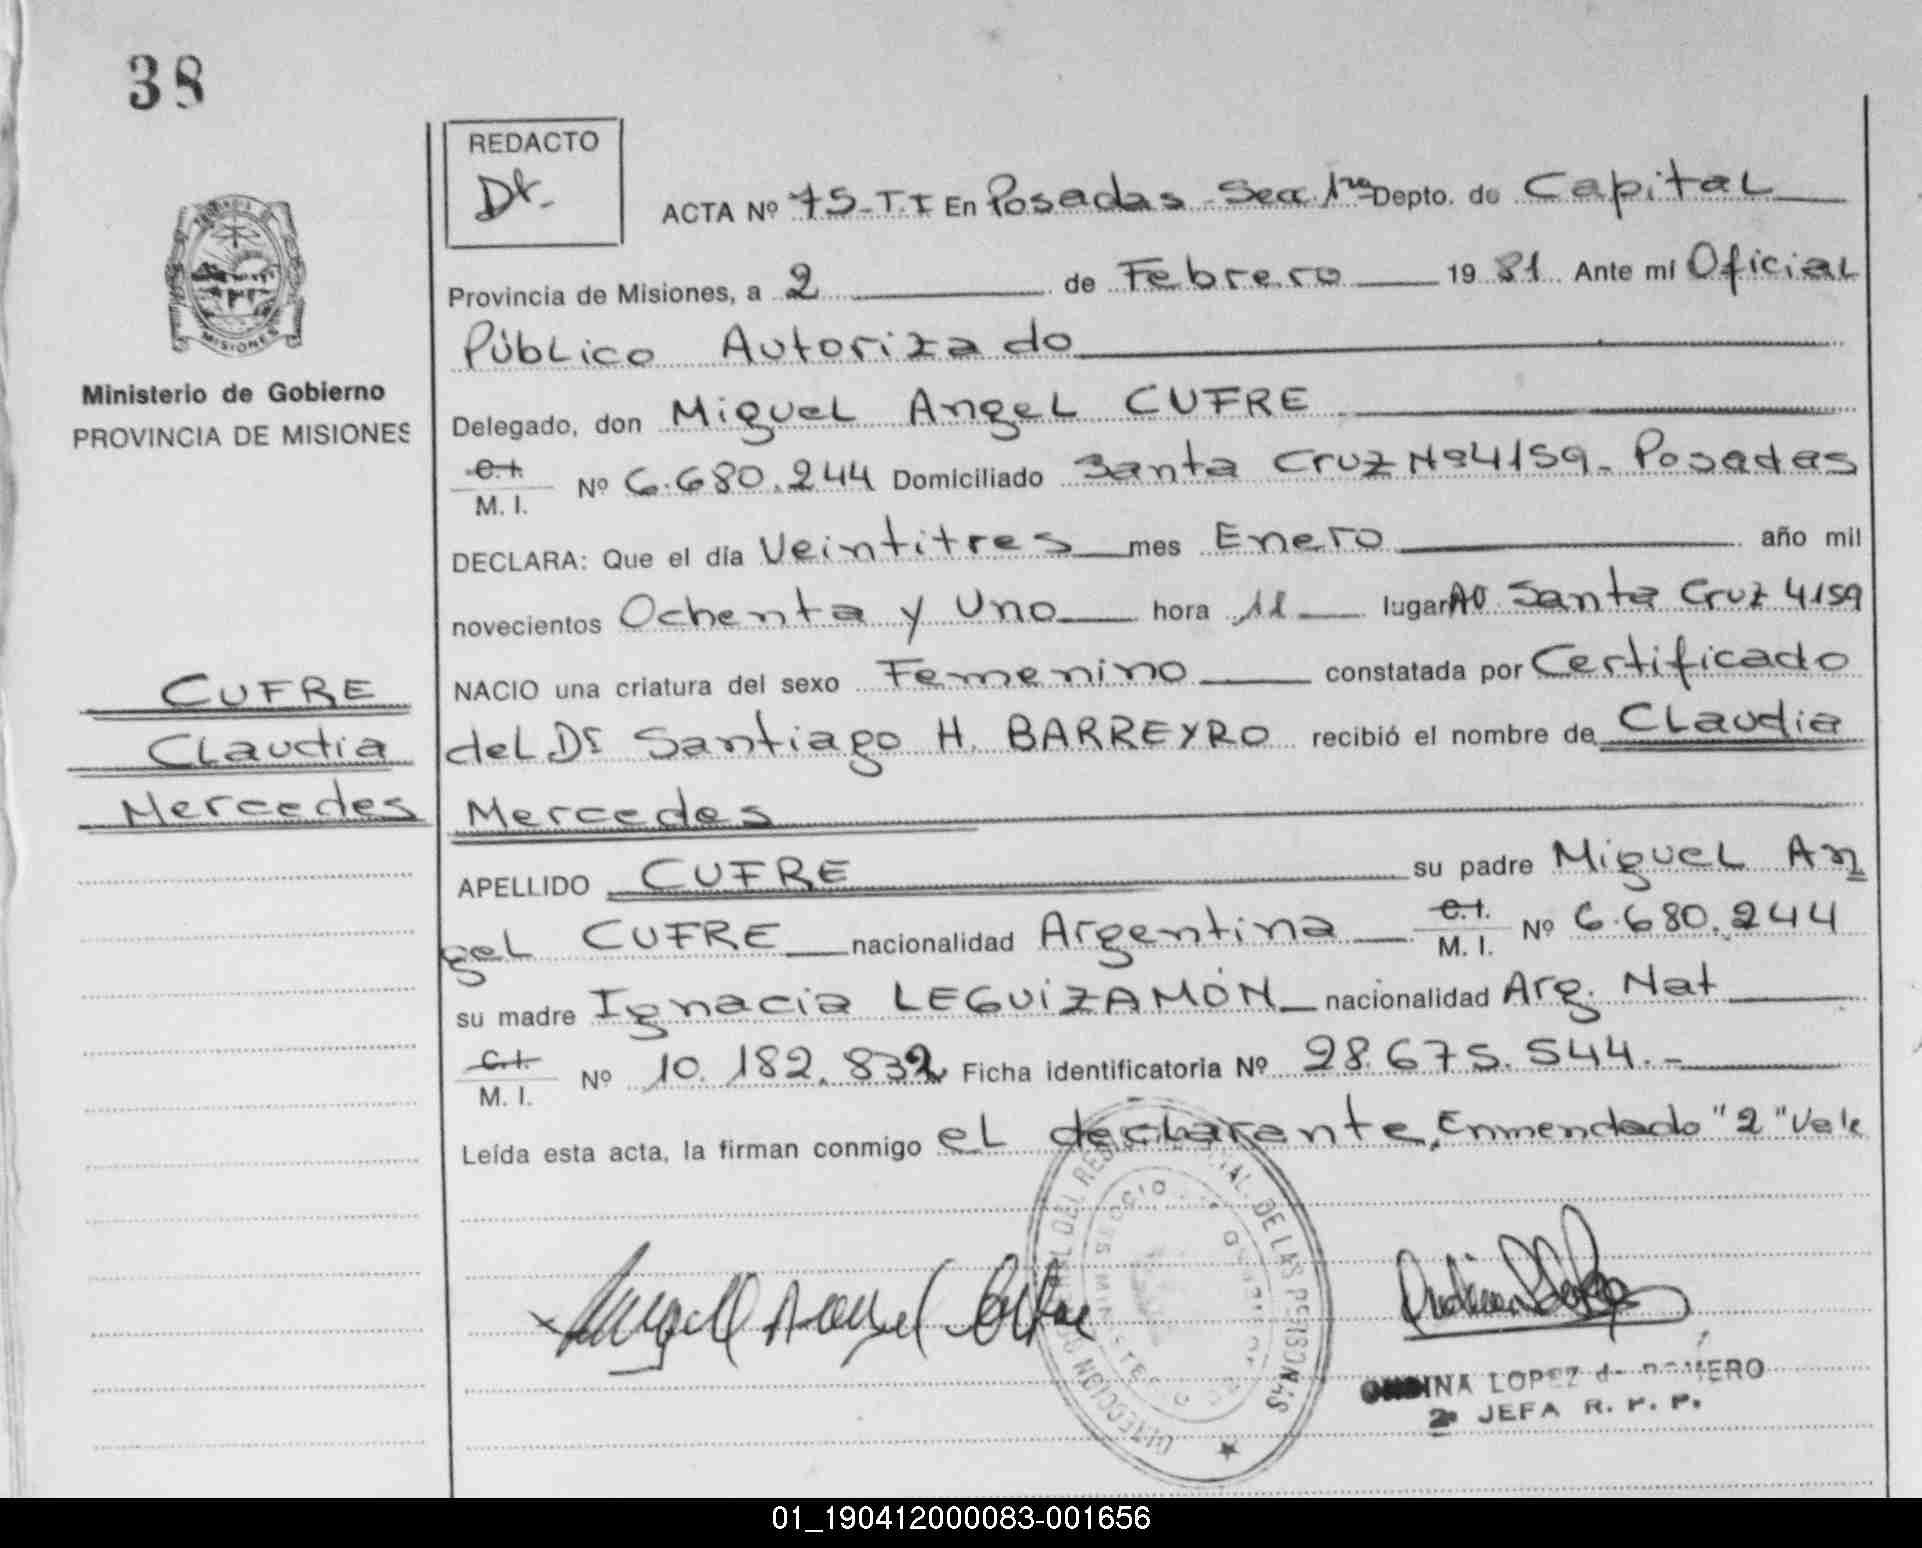 38
REDACTO
Dt.
ACTA Nº 75-T.I En Posadas-Sec. 1ra Depto. de Capital
MISIONES
Provincia de Misiones, a 2 de Febrero 19 81 Ante mí Oficial
Público Autorizado
Ministerio de Gobierno
PROVINCIA DE MISIONES
Delegado, don Miguel Angel CUFRE
C.I.
M. I. Nº 6.680.244 Domiciliado Santa Cruz Nº4159- Posadas
DECLARA: Que el día Veintitres mes Enero año mil
novecientos Ochenta y Uno hora 11 lugar AV Santa Cruz 4159
NACIO una criatura del sexo Femenino constatada por Certificado
CUFRE
Claudia
Mercedes
del Dr Santiago H. BARREYRO recibió el nombre de Claudia
Mercedes
APELLIDO CUFRE su padre Miguel An
gel CUFRE nacionalidad Argentina C.I. M. I. Nº 6.680.244
su madre Ignacia LEGUIZAMÓN nacionalidad Arg. Nat
C.I.
M. I. Nº 10.182.832 Ficha identificatoria Nº 28.675.544.-
Leída esta acta, la firman conmigo el declarante. Enmendado "2" Vale
DE LAS PERSONAS
DIRECCION
MINISTERIO
LOPEZ de ROMERO
2a JEFA R. P. P.
01_190412000083-001656